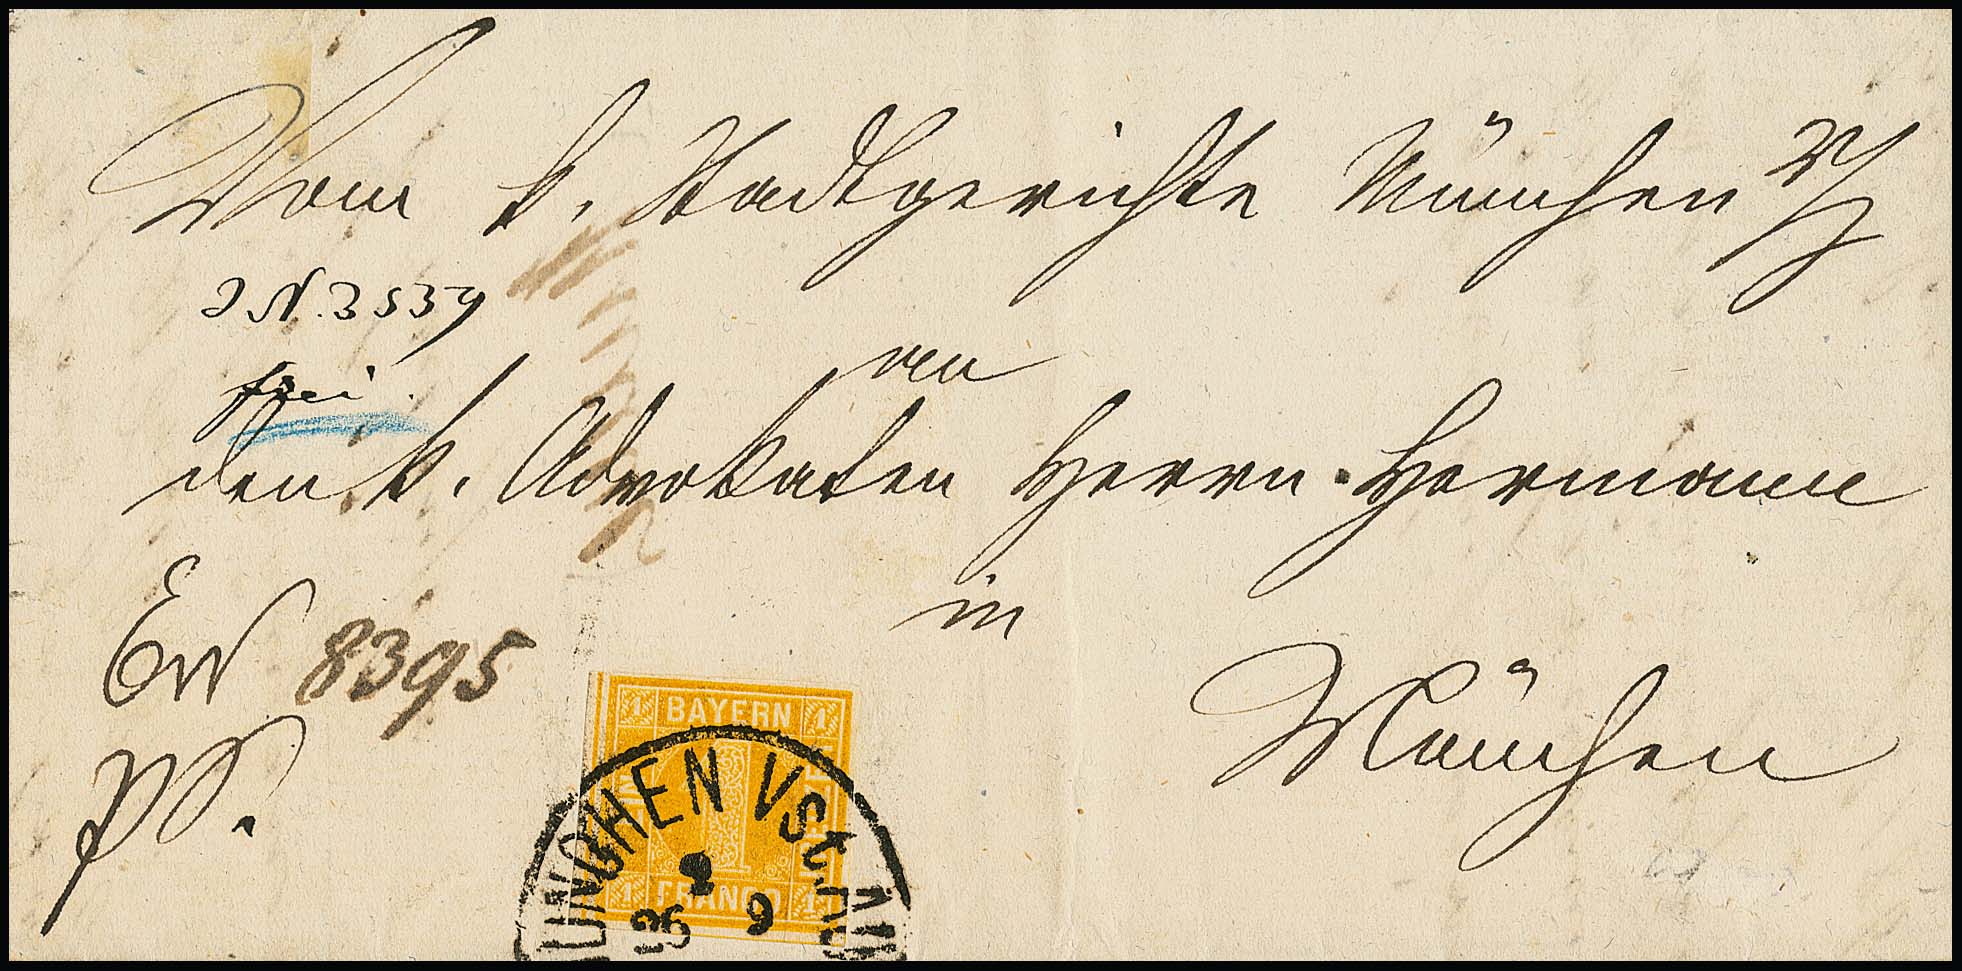 Vom k. Stadtgerichte München
J.N. 3539
frei.
an
den k. Advokaten Herrn Hermann
in
München
EN 8395
PS.
BAYERN
1 1
EIN
FRANCO
1 1
MÜNCHEN V St. AU
26 9